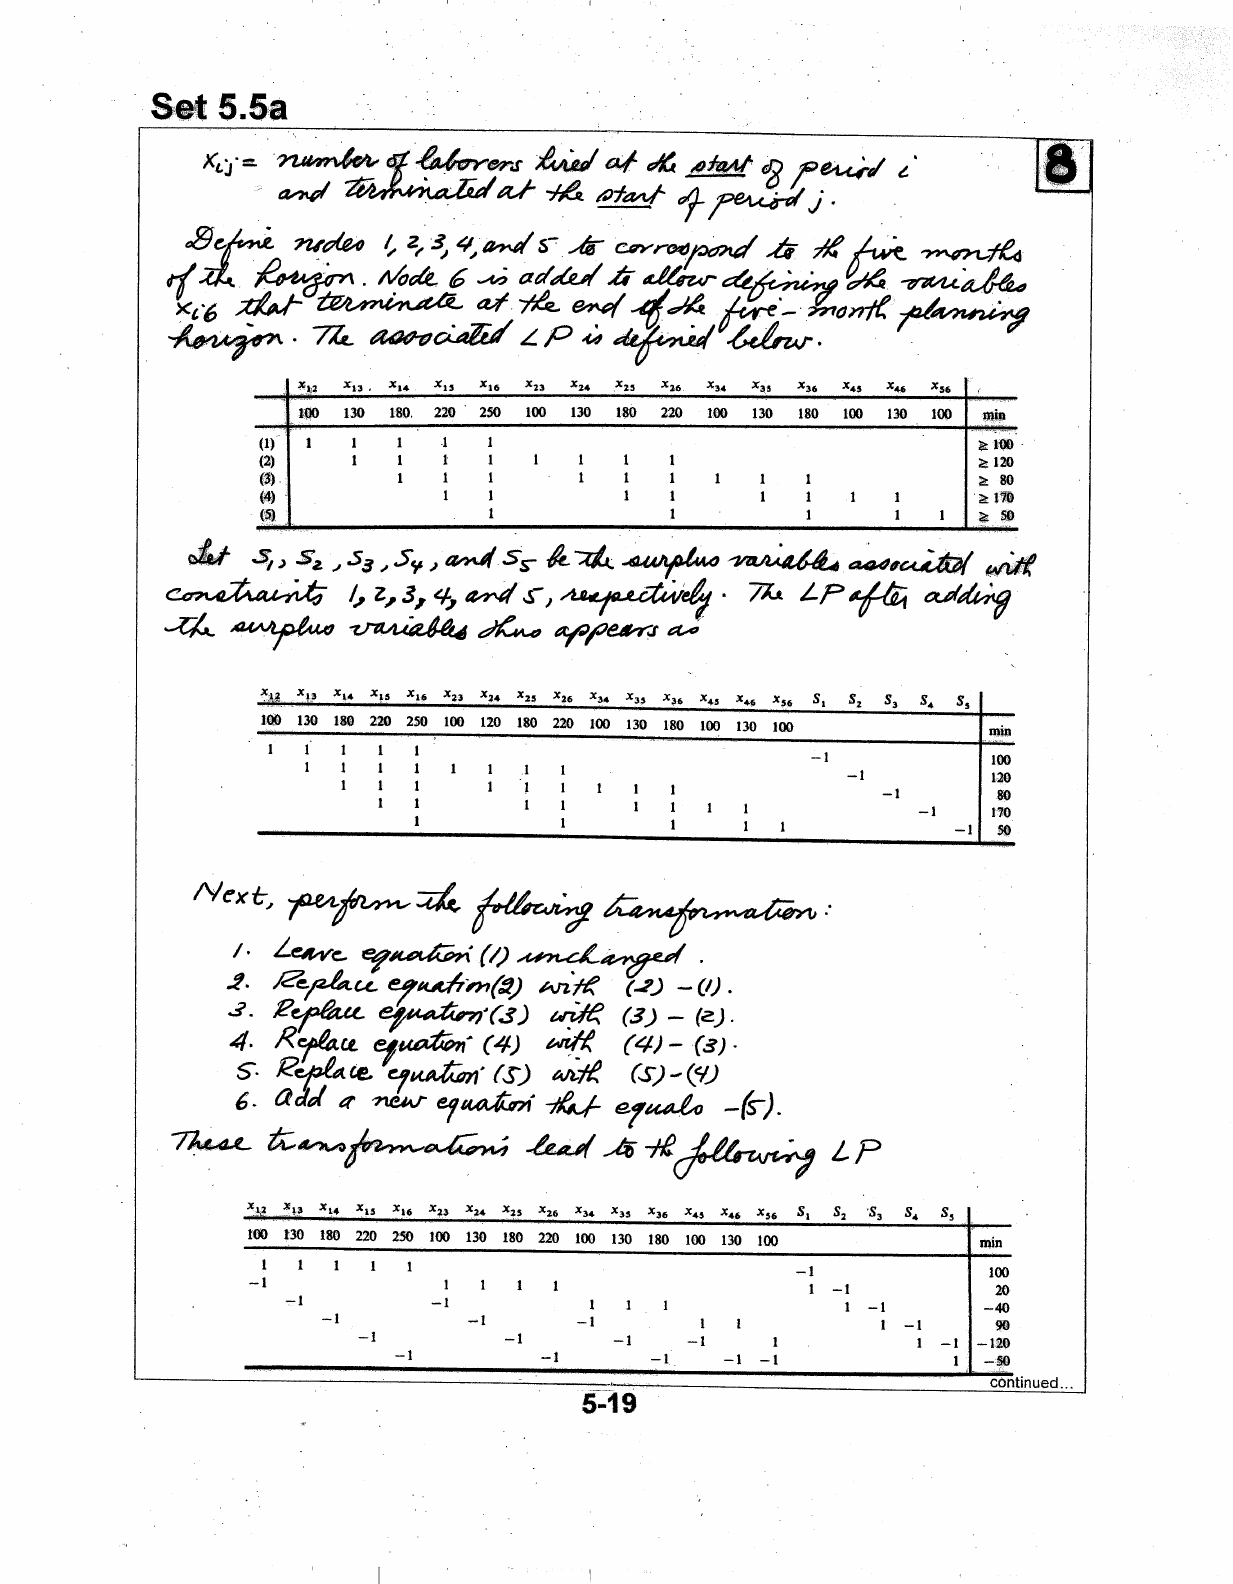 Set 5.5a
8
xij = number of laborers hired at the start of period i
and terminated at the start of period j.
Define nodes 1, 2, 3, 4, and 5 to correspond to the five months
of the horizon. Node 6 is added to allow defining the variables
xi6 that terminate at the end of the five-month planning
horizon. The associated LP is defined below.
x12 x13 x14 x15 x16 x23 x24 x25 x26 x34 x35 x36 x45 x46 x56
100 130 180 220 250 100 130 180 220 100 130 180 100 130 100 min
(1) 1 1 1 1 1 ≥ 100
(2) 1 1 1 1 1 1 1 1 ≥ 120
(3) 1 1 1 1 1 1 1 1 1 ≥ 80
(4) 1 1 1 1 1 1 1 1 ≥ 170
(5) 1 1 1 1 1 ≥ 50
Let S1, S2, S3, S4, and S5 be the surplus variables associated with
constraints 1, 2, 3, 4, and 5, respectively. The LP after adding
the surplus variables thus appears as
x12 x13 x14 x15 x16 x23 x24 x25 x26 x34 x35 x36 x45 x46 x56 S1 S2 S3 S4 S5
100 130 180 220 250 100 120 180 220 100 130 180 100 130 100 min
1 1 1 1 1 -1 100
1 1 1 1 1 1 1 1 -1 120
1 1 1 1 1 1 1 1 1 -1 80
1 1 1 1 1 1 1 1 -1 170
1 1 1 1 1 -1 50
Next, perform the following transformation:
1. Leave equation (1) unchanged.
2. Replace equation (2) with (2) - (1).
3. Replace equation (3) with (3) - (2).
4. Replace equation (4) with (4) - (3).
5. Replace equation (5) with (5)-(4)
6. Add a new equation that equals -(5).
These transformations lead to th following LP
x12 x13 x14 x15 x16 x23 x24 x25 x26 x34 x35 x36 x45 x46 x56 S1 S2 S3 S4 S5
100 130 180 220 250 100 130 180 220 100 130 180 100 130 100 min
1 1 1 1 1 -1 100
-1 1 1 1 1 1 -1 20
-1 -1 1 1 1 1 -1 -40
-1 -1 -1 1 1 1 -1 90
-1 -1 -1 -1 1 1 -1 -120
-1 -1 -1 -1 -1 1 -50
continued...
5-19